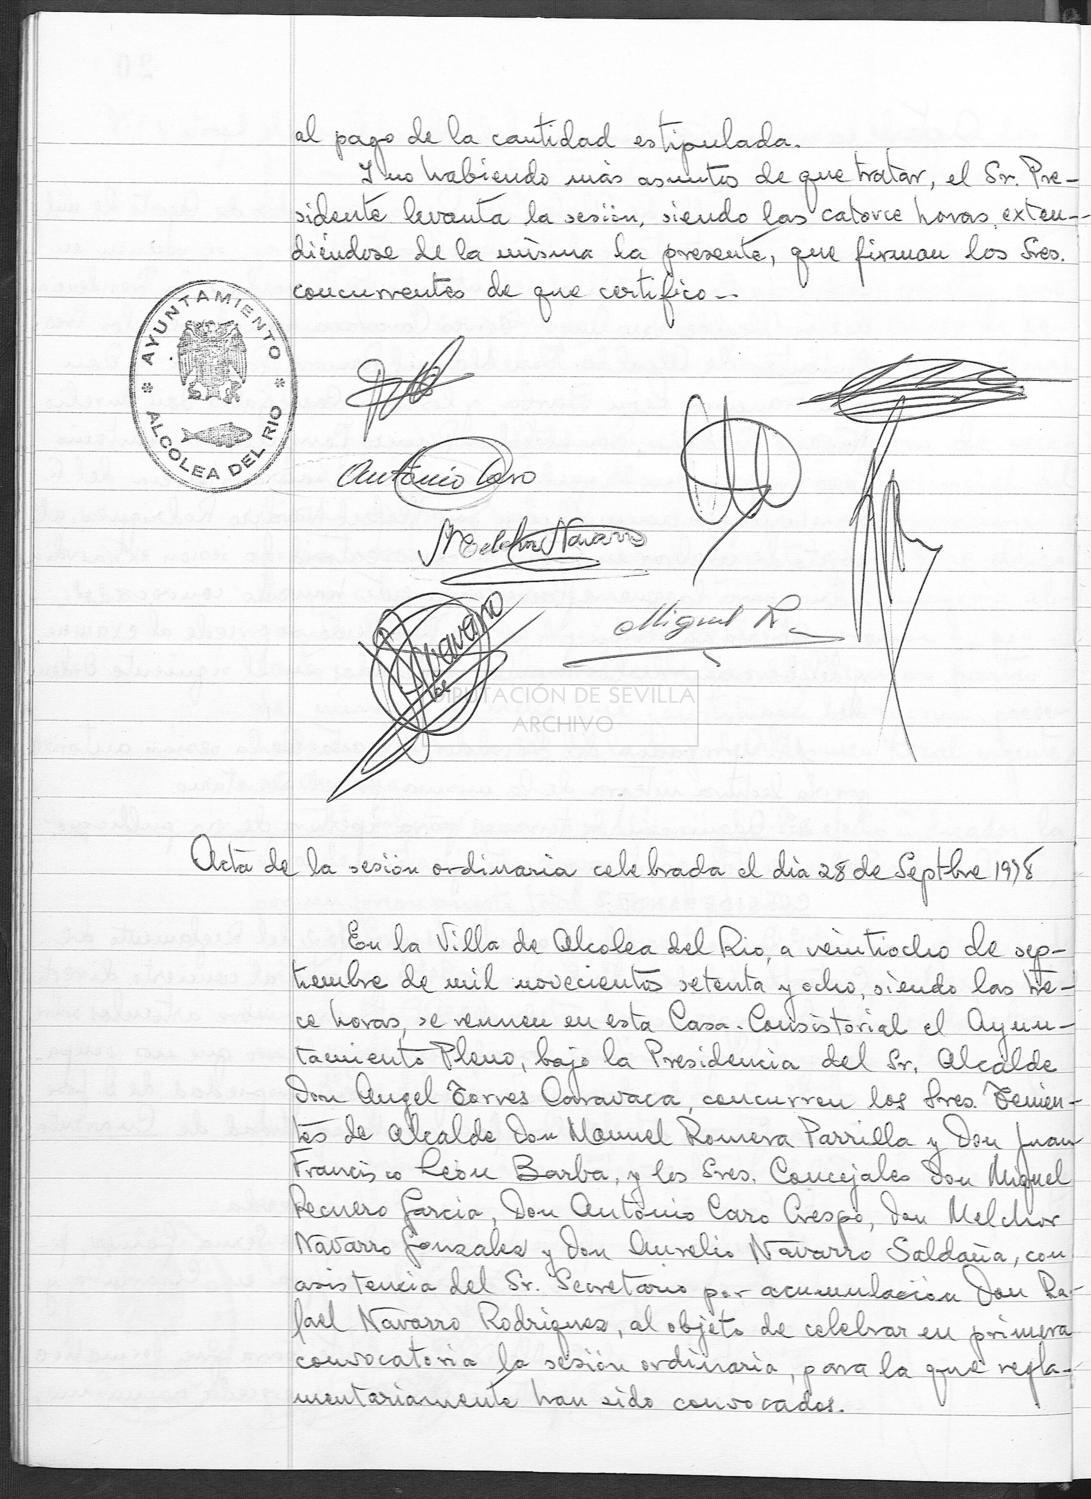 al pago de la cantidad estipulada.
Y no habiendo más asuntos de que tratar, el Sr. Pre-
sidente levanta la sesión, siendo las catorce horas, exten-
diéndose de la misma la presente, que firman los Sres.
concurrentes de que certifico.-
AYUNTAMIENTO
* *
ALCOLEA DEL RIO
Antonio Caro
Melchor Navarro
Navarro
Miguel R.
DIPUTACIÓN DE SEVILLA
ARCHIVO
Acta de la sesión ordinaria celebrada el dia 28 de Septbre 1978
En la Villa de Alcolea del Rio, a veintiocho de sep-
tiembre de mil novecientos setenta y ocho, siendo las tre-
ce horas, se reunen en esta Casa-Consistorial el Ayun-
tamiento Pleno, bajo la Presidencia del Sr. Alcalde
Don Angel Torres Caravaca, concurren los Sres. Tenien-
tes de Alcalde Don Manuel Romera Parrilla y Don Juan
Francisco León Barba, y los Sres. Concejales Don Miguel
Recuero Garcia, Don Antonio Caro Crespo, Don Melchor
Navarro Gonzalez y Don Aurelio Navarro Saldaña, con
asistencia del Sr. Secretario por acumulación Don Ra-
fael Navarro Rodriguez, al objeto de celebrar en primera
convocatoria la sesión ordinaria, para la que regla-
mentariamente han sido convocados.